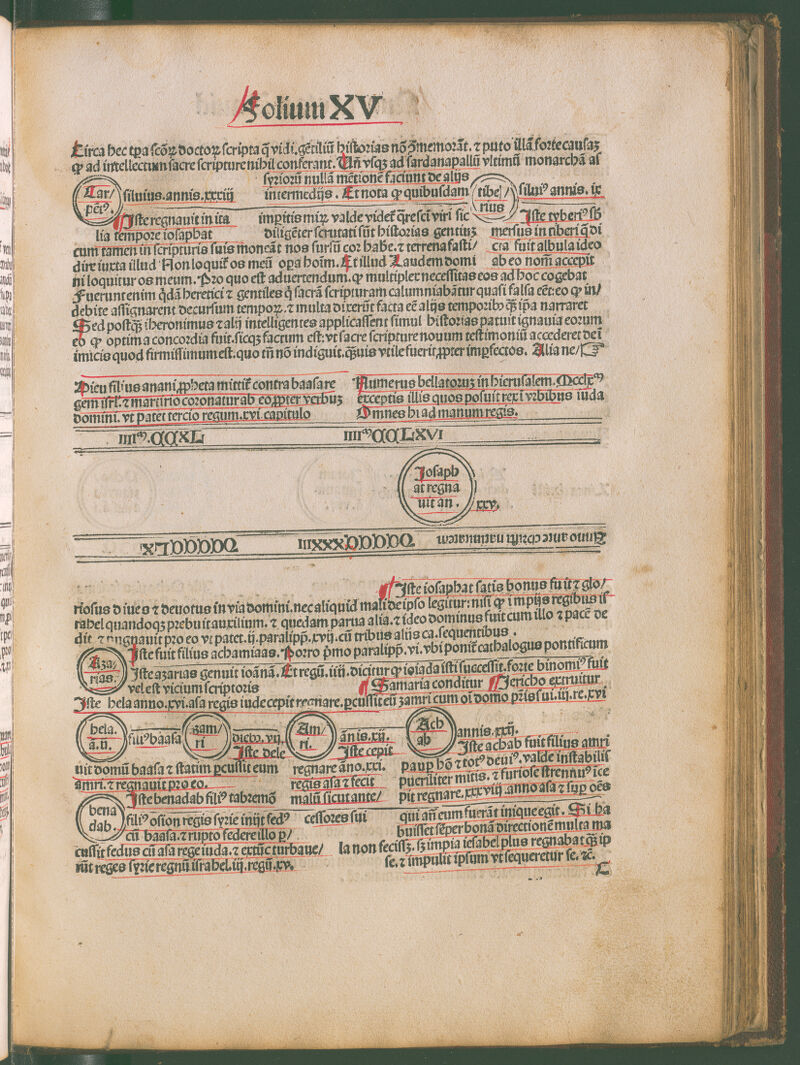 Folium XV
Circa hec tꝑa scōꝝ doctoꝝ scripta q̄ vidi. gētiliū historias nō ꝯmemorāt. ⁊ puto illā forte causaꝫ
ꝙ ad intellectum sacre scripture nihil conferant. Un̄ vsqꝫ ad sardanapallū vltimū monarchā as
syriorū nullā mētionē faciunt de alijs
Car/
pētꝰ.
siluius. annis. xxxiij
intermedijs. Et nota ꝙ quibusdam
tibe/
rius
siluiꝰ annis. ix
Iste regnauit in ita
imꝑitis miꝝ valde videt̄ q̄resci viri sic
Iste tyberiꝰ sb
lia tempore iosaphat
diligēter scrutati sūt historias gentiuꝫ
mersus in tiberi q̄ di
cum tamen in scripturis suis moneāt nos sursū cor habe. ⁊ terrena fasti/
cta fuit albula ideo
dire iuxta illud Non loquit̄ os meū opa hoīm. Et illud Laudem domi
ab eo nom̄ accepit
ni loquitur os meum. Pro quo est aduertendum. ꝙ multiplex necessitas eos ad hoc cogebat
Fuerunt enim q̄dā heretici ⁊ gentiles q̄ sacrā scripturam calumniabātur quasi falsa eēt: eo ꝙ in/
debite assignarent decursum tempoꝝ. ⁊ multa dixerūt facta eē alijs temporibꝰ q̄ꝫ ip̄a narraret
Sed postq̄ꝫ iheronimus ⁊ alij intelligentes applicassent simul historias patuit ignauia eorum
eo ꝙ optima concordia fuit. sicqꝫ factum est: vt sacre scripture nouum testimoniū accederet de i
inimicis quod firmissimum est. quo tn̄ nō indiguit. q̄uis vtile fuerit ꝓpter imꝑfectos. Alia ne/
Hieu filius anani ꝓpheta mittit̄ contra baasa re
gem isrl. ⁊ martirio coronatur ab eo ꝓpter verbuꝫ
domini. vt patet tercio regum. xvi. capitulo
Numerus bellatoruꝫ in hierusalem. Mcclxᵐ
exceptis illis quos posuit rex ī vrbibus iuda
Omnes hi ad manum regis.
iiiiᵐ. CCXL
iiiiᵐ CCLXVI
Iosaph
at regna
uit an.
xxv.
Anno ante cḣristi natiuitatem
DCCCCXXXIII
DCCCCLIX
Iste iosaphat satis bonus fuit ⁊ glo/
riosus diues ⁊ deuotus in via domini. nec aliquid mali de ipso legitur: nisi ꝙ impijs regibus is
rahel quandoqꝫ prebuit auxilium. ⁊ quedam parua alia. ⁊ ideo dominus fuit cum illo ⁊ pacē de
dit ⁊ pugnauit pro eo vt patet. ij. paralipp̄. xvij. cū tribus alijs ca. sequentibus.
Aza/
rias.
Iste fuit filius achamiaas. Porro p̄mo paralipp̄. vi. vbi ponit̄ cathalogus pontificum
Iste azarias genuit ioānā. Et regū. iiii. dicitur ꝙ ioiada isti successit. forte binomiꝰ fuit
vel est vicium scriptoris
Samaria conditur
Jericho extruitur
Iste hela anno. xvi. asa regis iude cepit regnare. ꝑcussit eū zamri cum oī domo pr̄is sui. iij. re. xvi
hela.
a. ii.
filiꝰ baasa
zam/
ri
diebꝰ. vij.
Am/
ri.
ānis. xij.
Ach
ab
annis. xxij.
Iste dele
Iste cepit
Iste achab fuit filius amri
uit domū baasa ⁊ statim ꝑcussit eum
regnare āno. xxxi.
pauꝑ hō ⁊ totꝰ deuiꝰ. valde instabilis
amri. ⁊ regnauit pro eo.
regis asa ⁊ fecit
pueriliter mitis. ⁊ furiose strennuꝰ īce
Iste benadab filiꝰ tabremō
malū sicut ante/
pit regnare. xxxviij. anno asa ⁊ suꝑ oēs
bena
dab.
filiꝰ osion regis syrie inijt fedꝰ
cessores sui
qui an̄ eum fuerāt inique egit. Si ha
cū baasa. ⁊ rupto federe illo ꝑ/
buisset semꝑ bonā directionē multa ma
cussit fedus cū asa rege iuda. ⁊ extūc turbaue/
la non fecissꝫ. sꝫ impia iesabel plus regnabat q̄ꝫ ip
rūt reges syrie regnū israhel. iij. regū. xv.
se. ⁊ impulit ipsum vt sequeretur se. ⁊c̄.